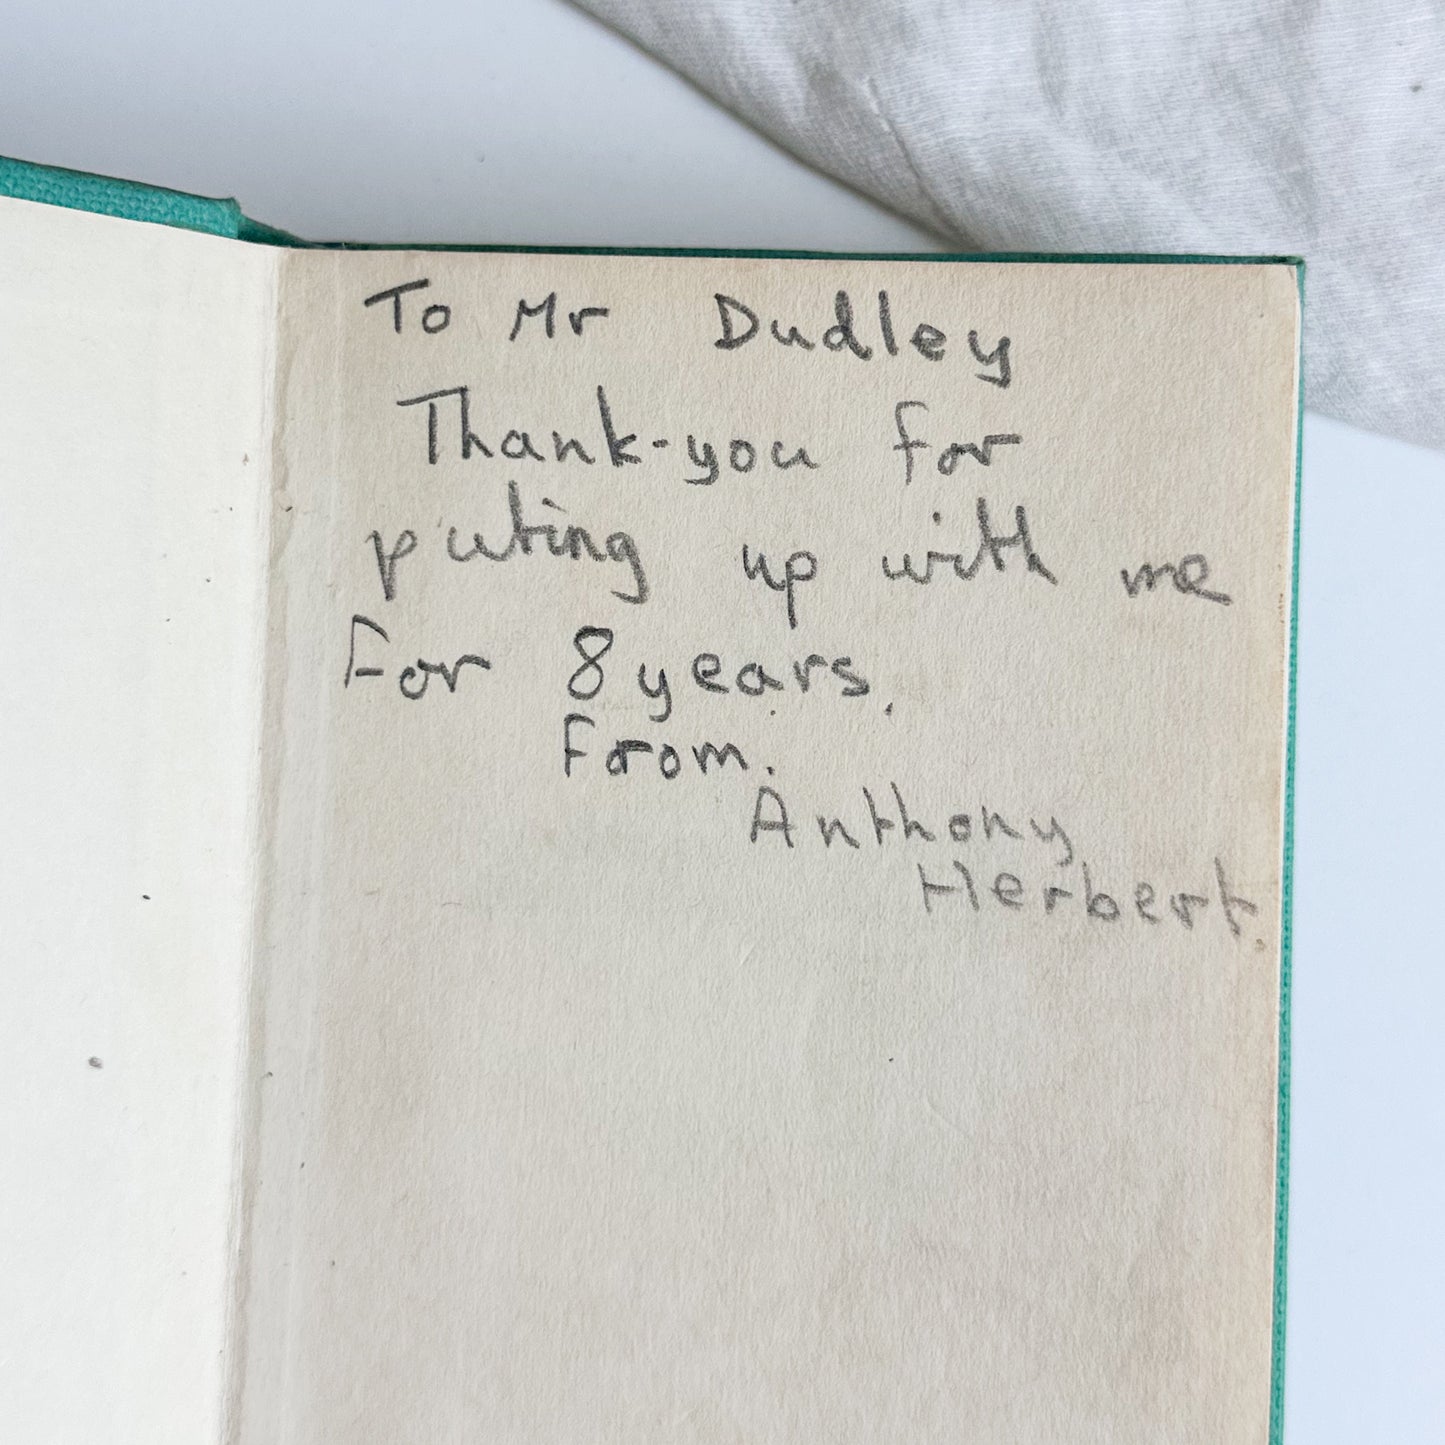 To Mr Dudley
Thank-you for
puting up with me
for 8 years.
From.
Anthony
Herbert.